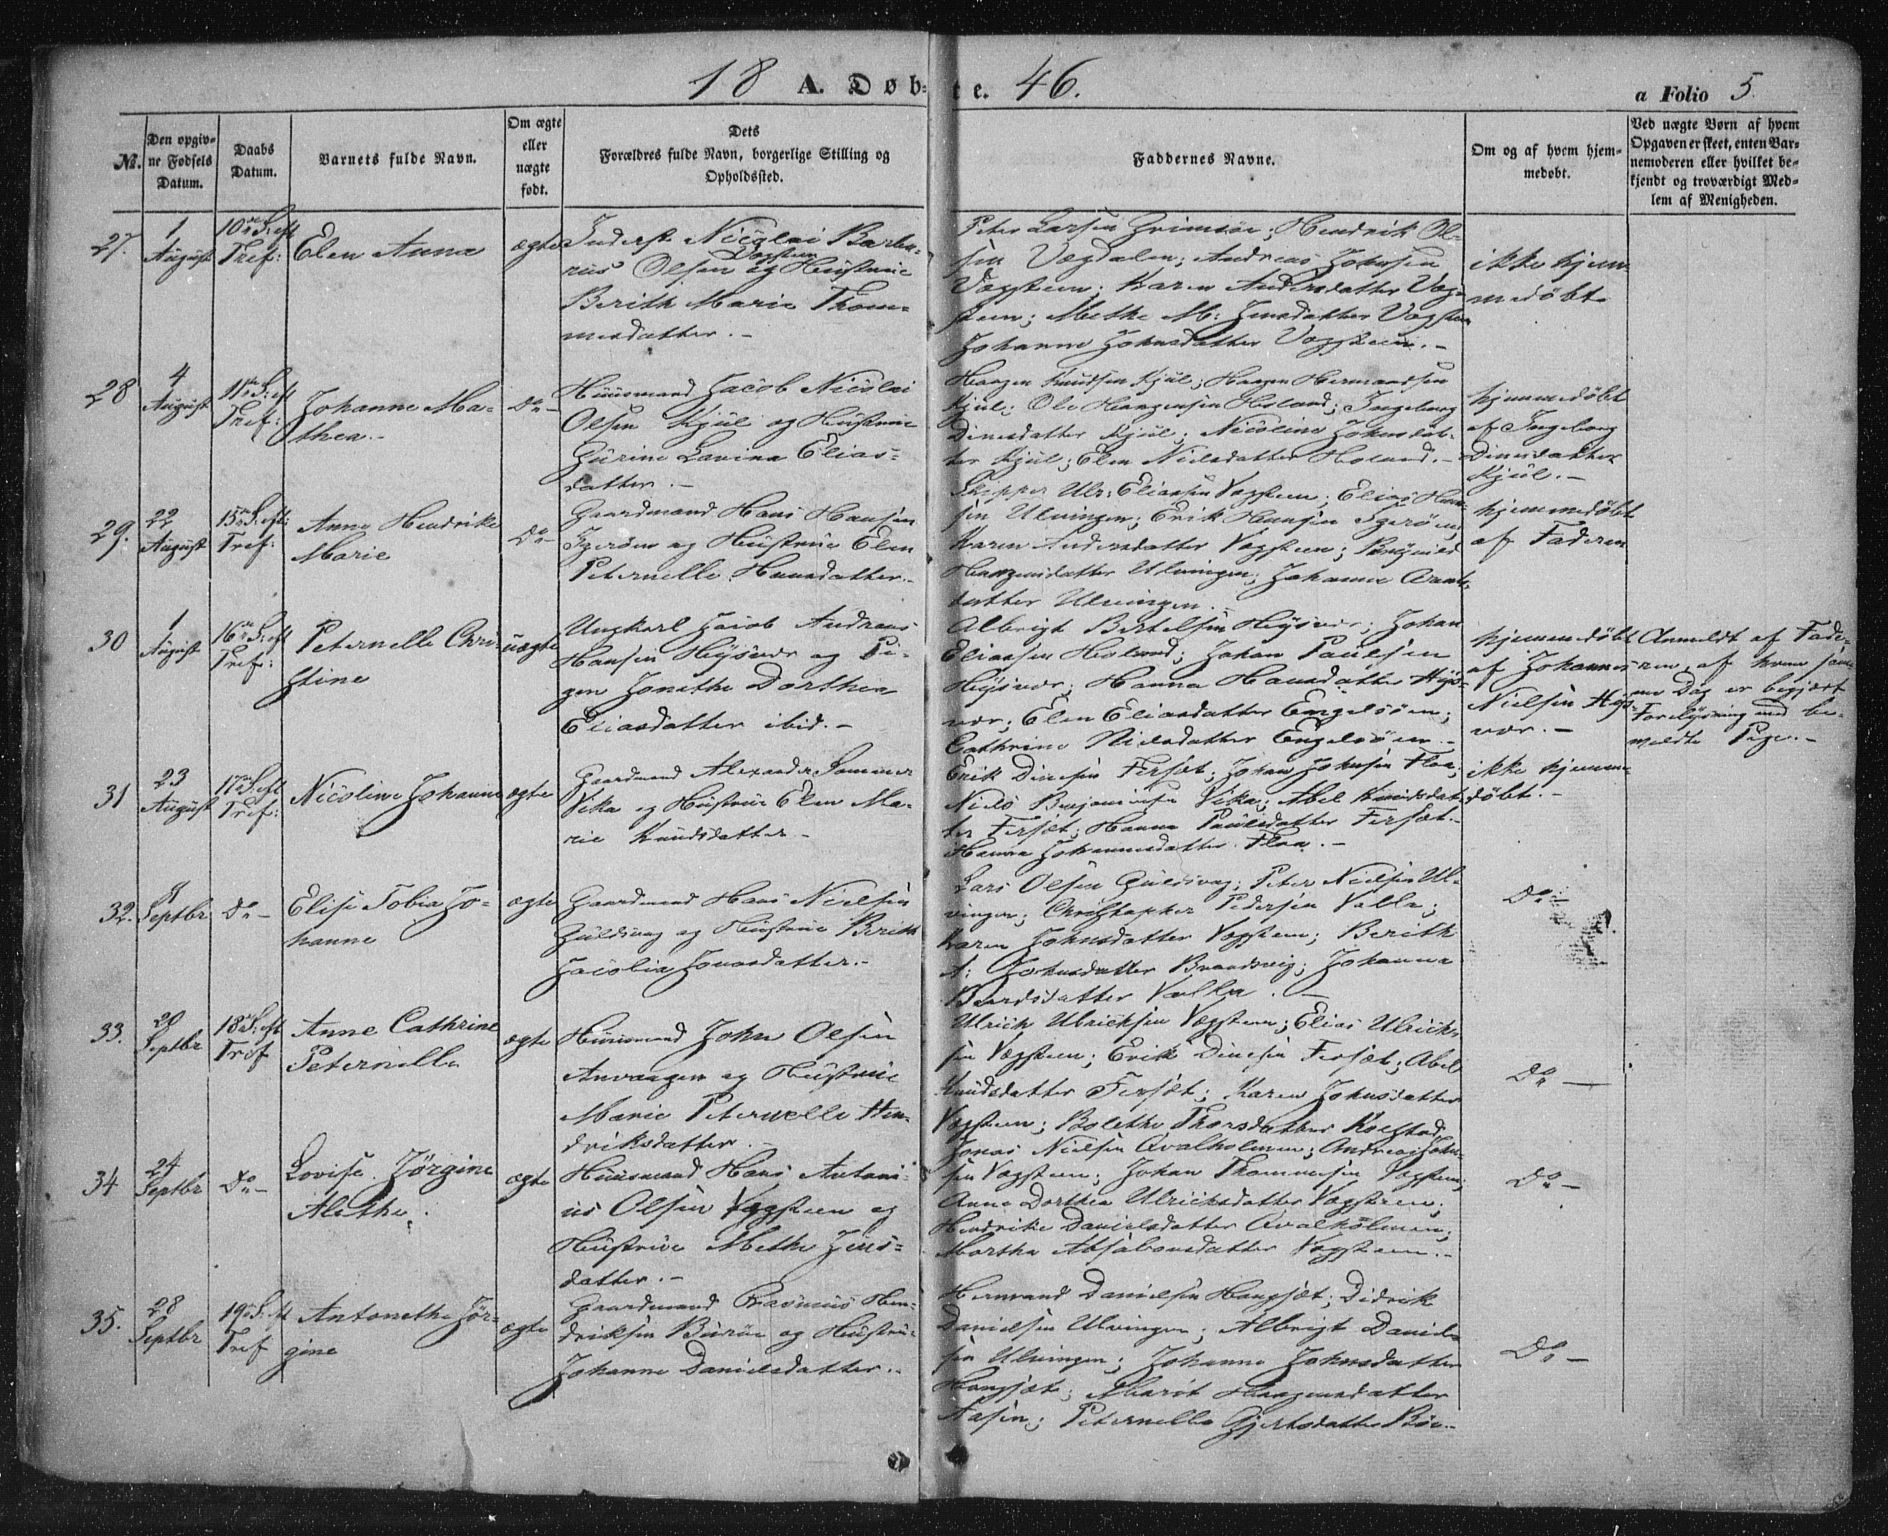 18 A. Døb-te. 46.
a Folio 5.
No.
Den opgiv-
ne Fødsels
Datum.
Daabs
Datum.
Barnets fulde Navn.
Om ægte
eller
uægte
født.
Dets
Forældres fulde Navn, borgerlige Stilling og
Opholdssted.
Faddernes Navne.
Om og af hvem hjem-
medøbt.
Ved uægte Børn af hvem
Opgaven er skeet, enten Bar-
nemoderen eller hvilket be-
kjendt og troværdigt Med-
lem af Menigheden.
27.
1
August
10de S: eft
Tref:
Elen Anna
ægte
Inderst Nicolai Barba-
Vægsteen
rius Olsen og Hustrue
Berith Marie Thom-
mesdatter.-
Peter Larsen; Hendrik Ol-
sen Vægdalen; Andreas Johnsen
Vægsteen; Karen Andersdatter Væg-
steen; Methe M: Jensdatter Vægsteen
Johanne Johnsdatter Vægsteen.-
ikke hjem-
medøbt
28
4
August
11te S: eft
Tref:
Johanne Ma-
thea.-
Do-
Huusmand Jacob Nicolai
Olsen Kjül og Hustrue
Lavina Elias-
datter.-
Haagen Knudsen Kjül; Haagen Hermandsen
Kjül; Ole Haagensen Holand; Ingeborg
Dinesdatter Kjül; Nicoline Johnsdat-
ter Kjül; Elen Nielsdatter Holand.-
hjemmedøbt
af Ingeborg
Dinesdatter
Kjül.-
29.
22
August
15de S: eft:
Tref:
Anne Hendrikke
Marie
Do-
Gaardmand Hans Hansen
Igerøen og Hustrue Elen
Peternelle Hansdatter.-
Skipper Ulr: Eliassen Vægsteen; Elias Han-
sen Ulvingen; Erik Hansen Igerøen;
Karen Andersdatter Vægsteen;
Haagensdatter Ulvingen; Johanna
datter Ulvingen.
hjemmedøbt
af Faderen
30
1
August
16de S: eft
Tref:
Peternelle Chri-
stine
uægte
Ungkarl Jacob Andreas
Hansen Høysvær og Pi-
gen Jonetha Dorthea
Eliasdatter ibid.-
Albrigt Bertelsen Høysvær; Johan
Eliassen Holand; Johan Paulsen
Høysvær; Hanna Hansdatter Høys-
vær; Elen Eliasdatter Engelsøen;
Cathrine Nielsdatter Engelsøen.-
hjemmedøbt
af Johannes
Nielsen Høys-
vær.-
Anmeldt af Fade-
ren, af hvem sam-
me Dag er begjært
Forlysning med be-
meldte Pige.-
31
23
August
17de S: eft
Tref:
Nicoline Johanne
ægte
Gaardmand Alexander Sommer
Vika og Hustrue Elen Ma-
rie Knudsdatter.-
Erik Dinesen Fersæt; Johan Johnsen Floa;
Niels Benjaminsen Vika; Abel Knudsdat-
ter Fersæt; Hanna Paulsdatter Fersæt.
Hanna Johannesdatter Floa.-
ikke hjemme-
døbt.-
32.
8
Septbr
Do-
Elise Tobia Jo-
hanne
ægte
Gaardmand Hans Nielsen
Guldsvag og Hustrue Berith
Jacobia Jonasdatter.-
Lars Olsen Guldsvag; Peter Nielsen Ul-
vingen; Christopher Pedersen Valla;
Karen Johnsdatter Vægsteen; Berith
A: Johnsdatter Brandsvig; Johanna
Baardsdatter Valla.-
Do-
33.
20
Septbr
18de S: eft
Tref
Anne Cathrine
Peternelle
ægte
Huusmand John Olsen
Anvaagen og Hustrue
Marie Peternelle Hen-
driksdatter.-
Ulrich Ulricksen Vægsteen; Elias Ulrick-
sen Vægsteen; Erik Dinesen Fersæt; Abel
Knudsdatter Fersæt; Karen Johnsdatter
Vægsteen; Bolethe Thorsdatter Rolstad
Do-
34
24
Septbr
Do-
Lovise Jørgine
Alethe.
ægte
Huusmand Hans Antoni-
us Olsen Vægsteen og
Hustrue Methe Jens-
datter.-
Jonas Nielsen Qvalholmen; Andreas John-
sen Vægsteen; Johan Thommesen Vægsteen;
Anne Dorthea Ulricksdatter Vægsteen;
Hendrikke Danielsdatter Qvalholmen;
Martha Absalonsdatter Vægsteen.-
Do-
35.
28
Septbr
19de S: eft
Tref
Antonethe Jør-
gine
ægte
Gaardmand Rasmus Hen-
driksen Burøe og Hustrue
Johanne Danielsdatter.-
Hermand Danielsen Haugsæt; Didrik
Danielsen Ulvingen; Albrigt Daniel-
sen Ulvingen; Johanne Johnsdatter
Haugsæt; Marit Haagensdatter
Aasen; Peternelle Gjertsdatter
Do-